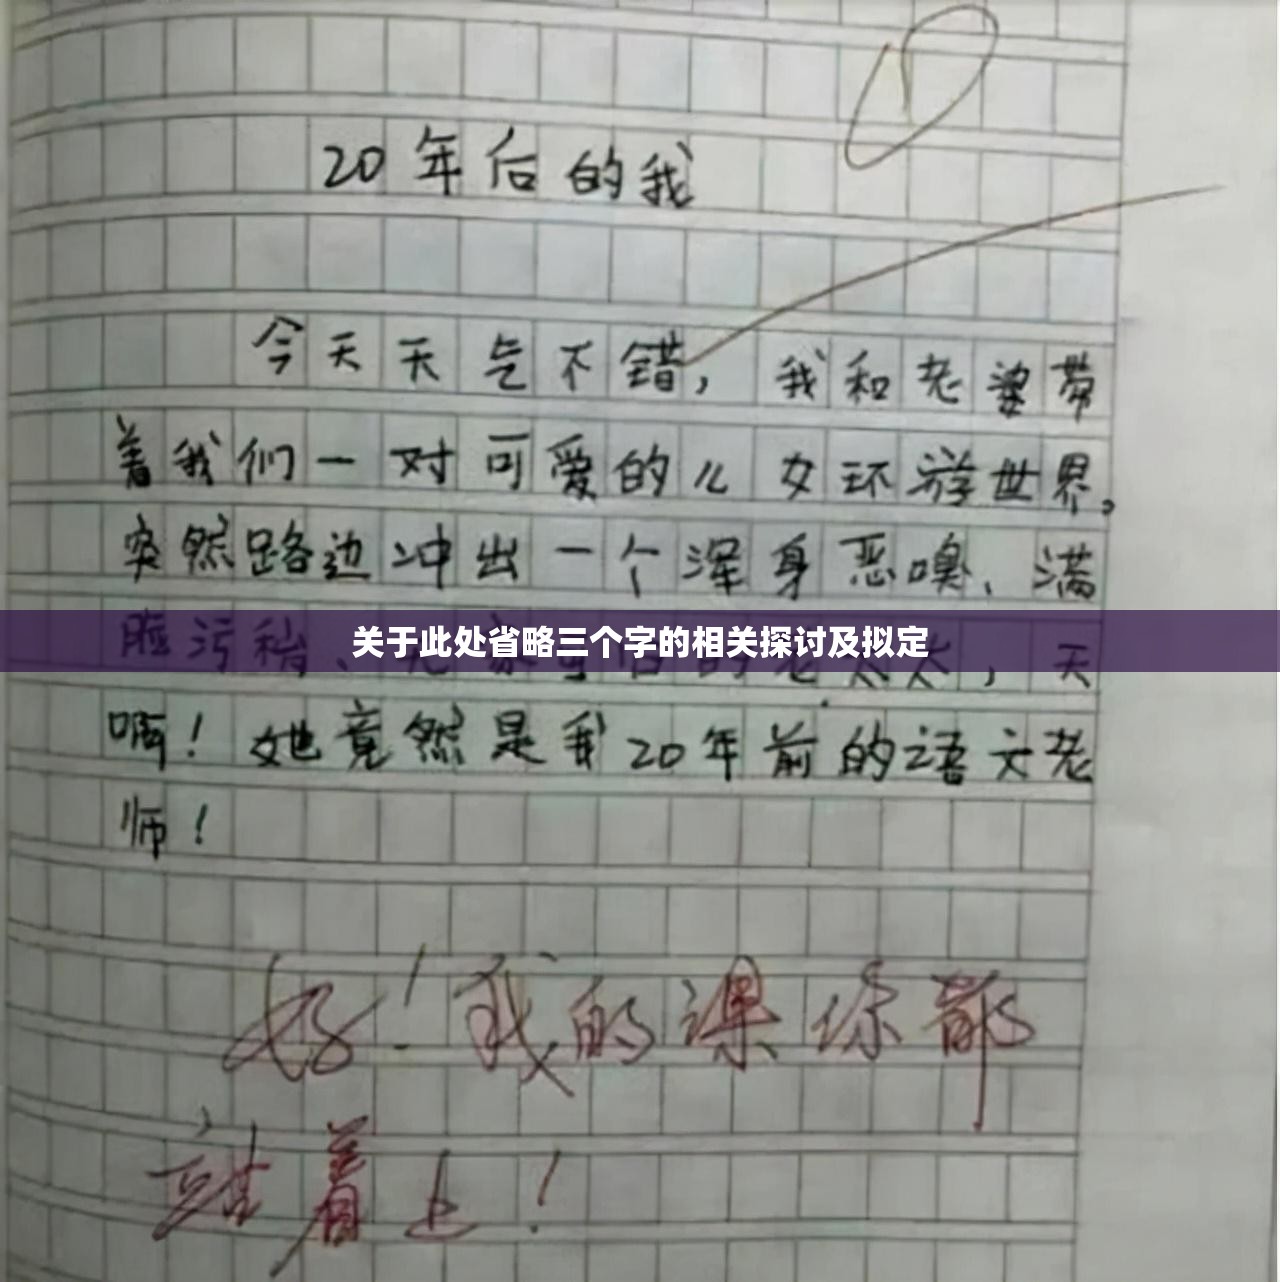 20年后的我
今天天气不错，我和老婆带
着我们一对可爱的儿女环游世界，
突然路边冲出一个浑身恶嗅、满
脸污秽、无家可归的老太太，天
关于此处省略三个字的相关探讨及拟定
啊！她竟然是我20年前的语文老
师！
好！我的课你都
站着上！